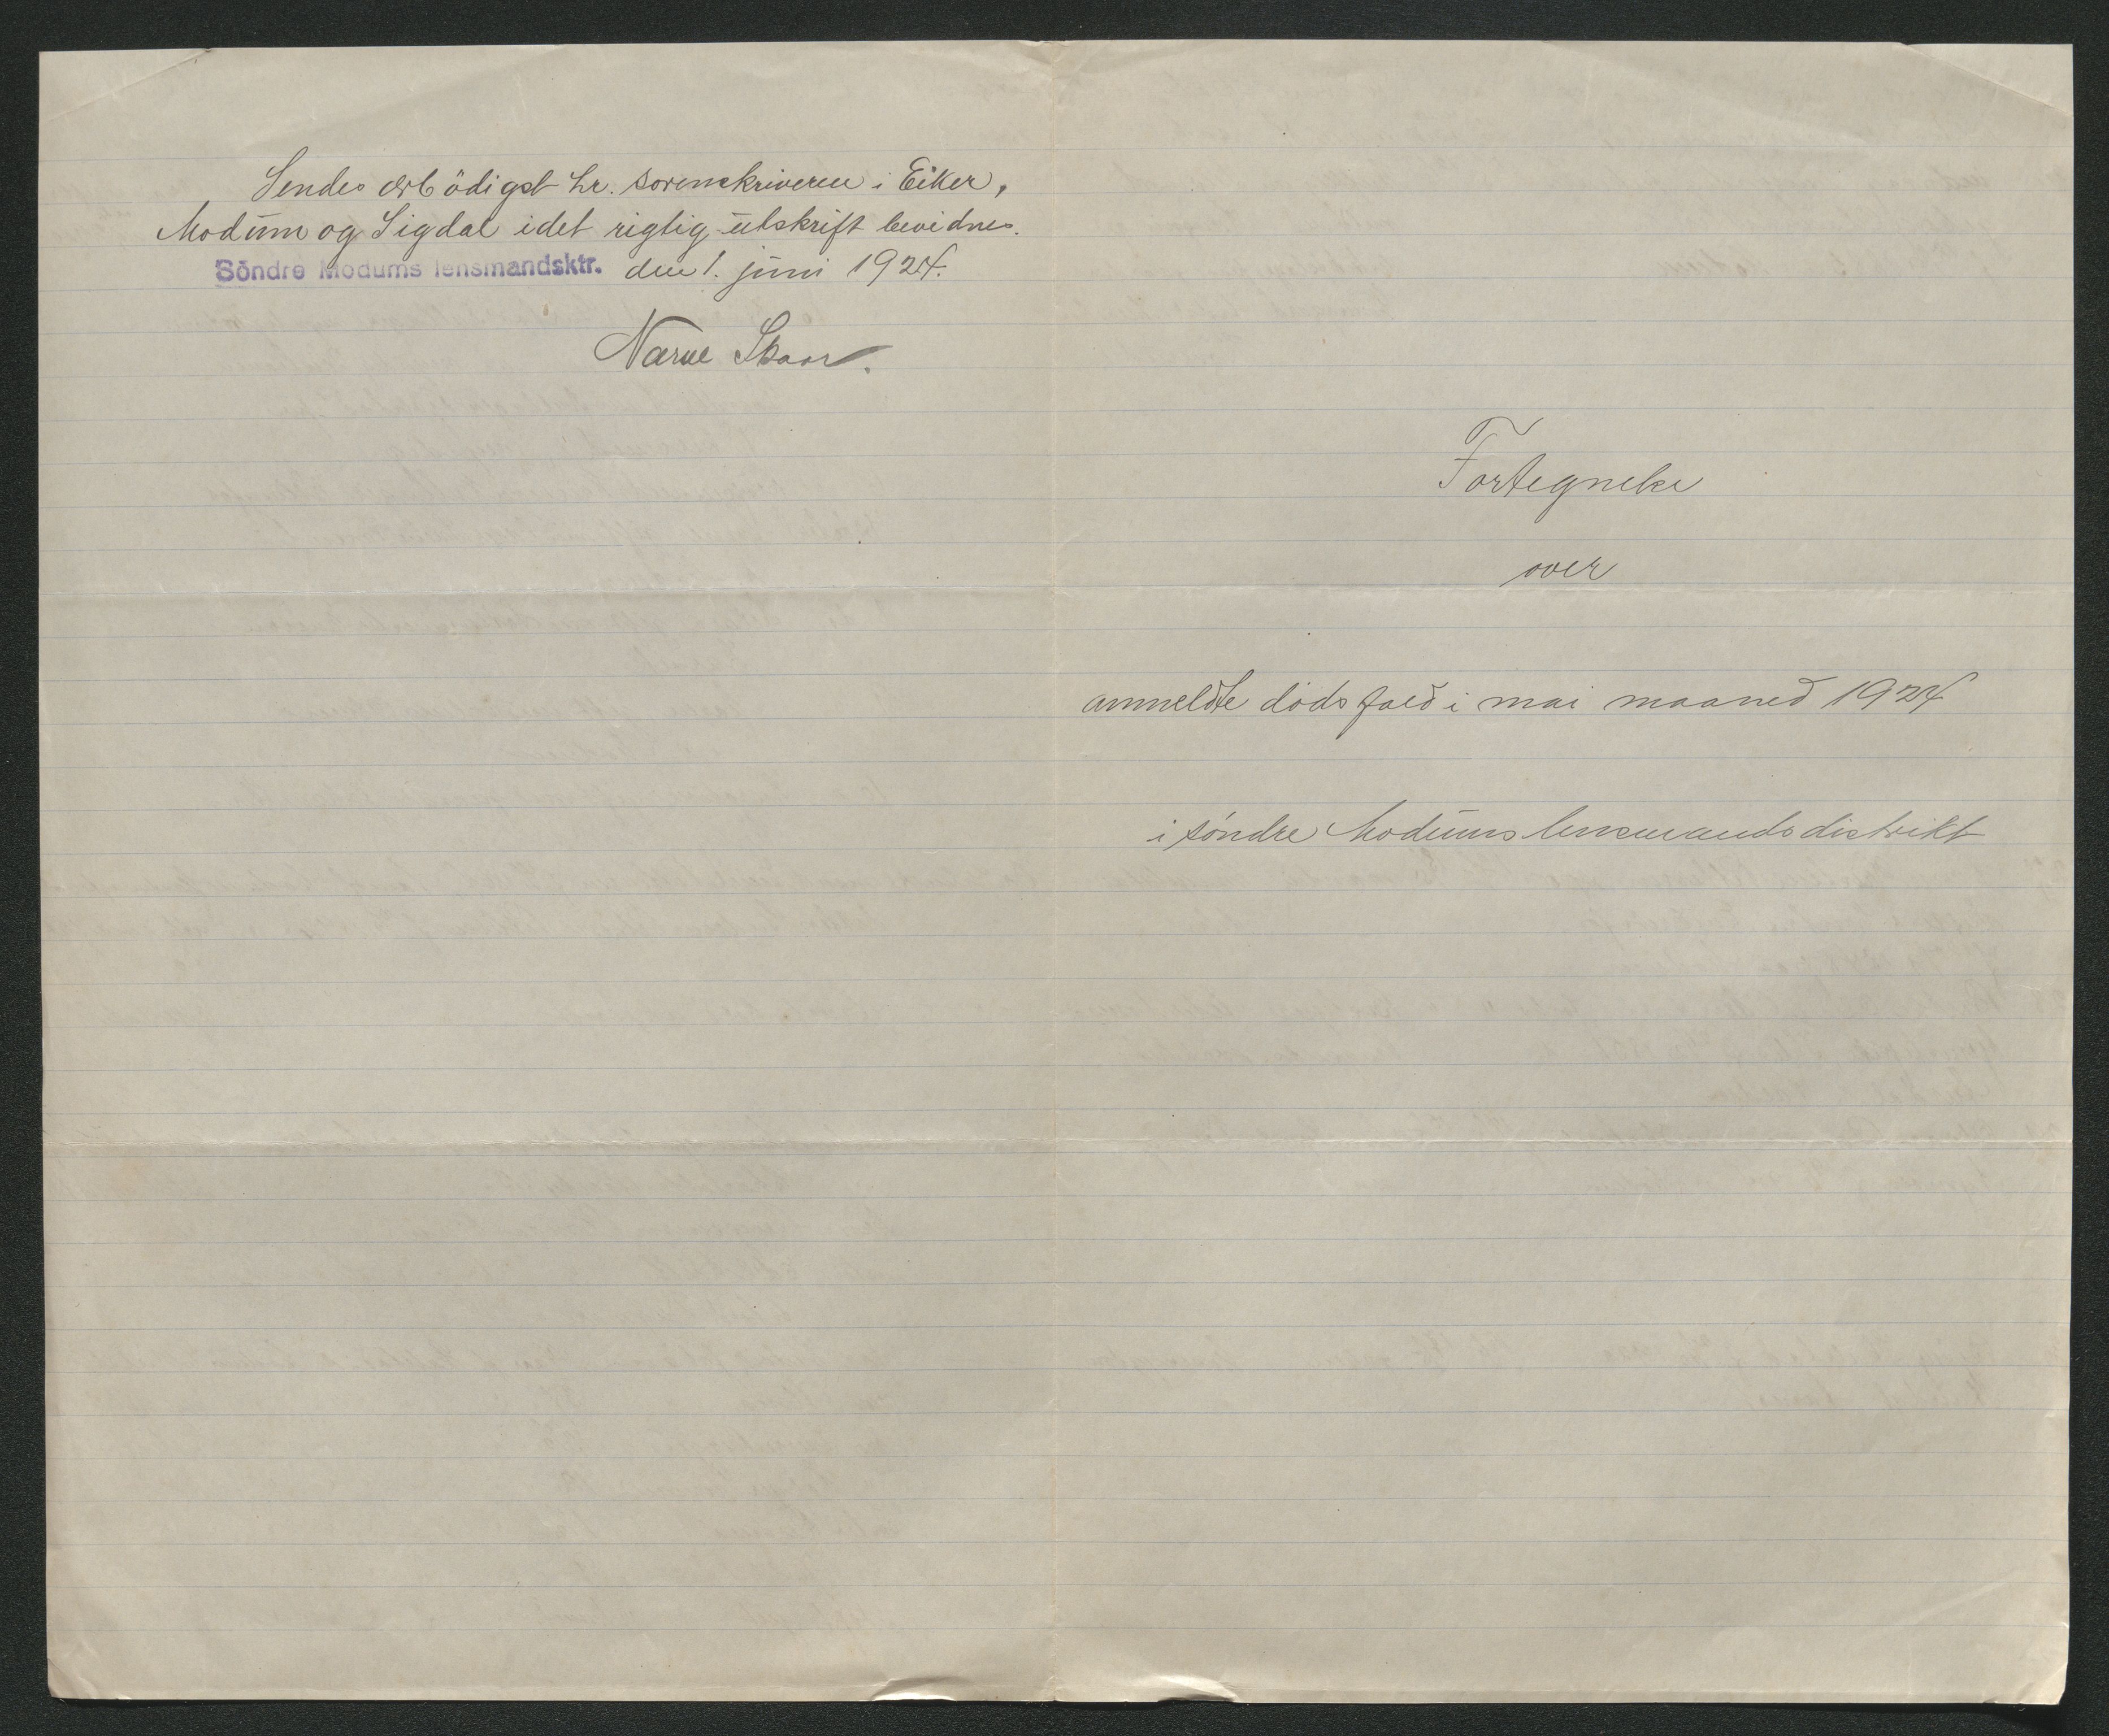 Sendes ærbödigst hr. sorenskriveren i Eiker,
Modum og Sigdal idet rigtig utskrift bevidnes.
Söndre Modums lensmandsktr. den 1. juni 1924.
Narve Skaar.
Fortegnelse
over
anmeldte dödsfald i mai maaned 1924
i söndre Modums lensmandsdistrikt